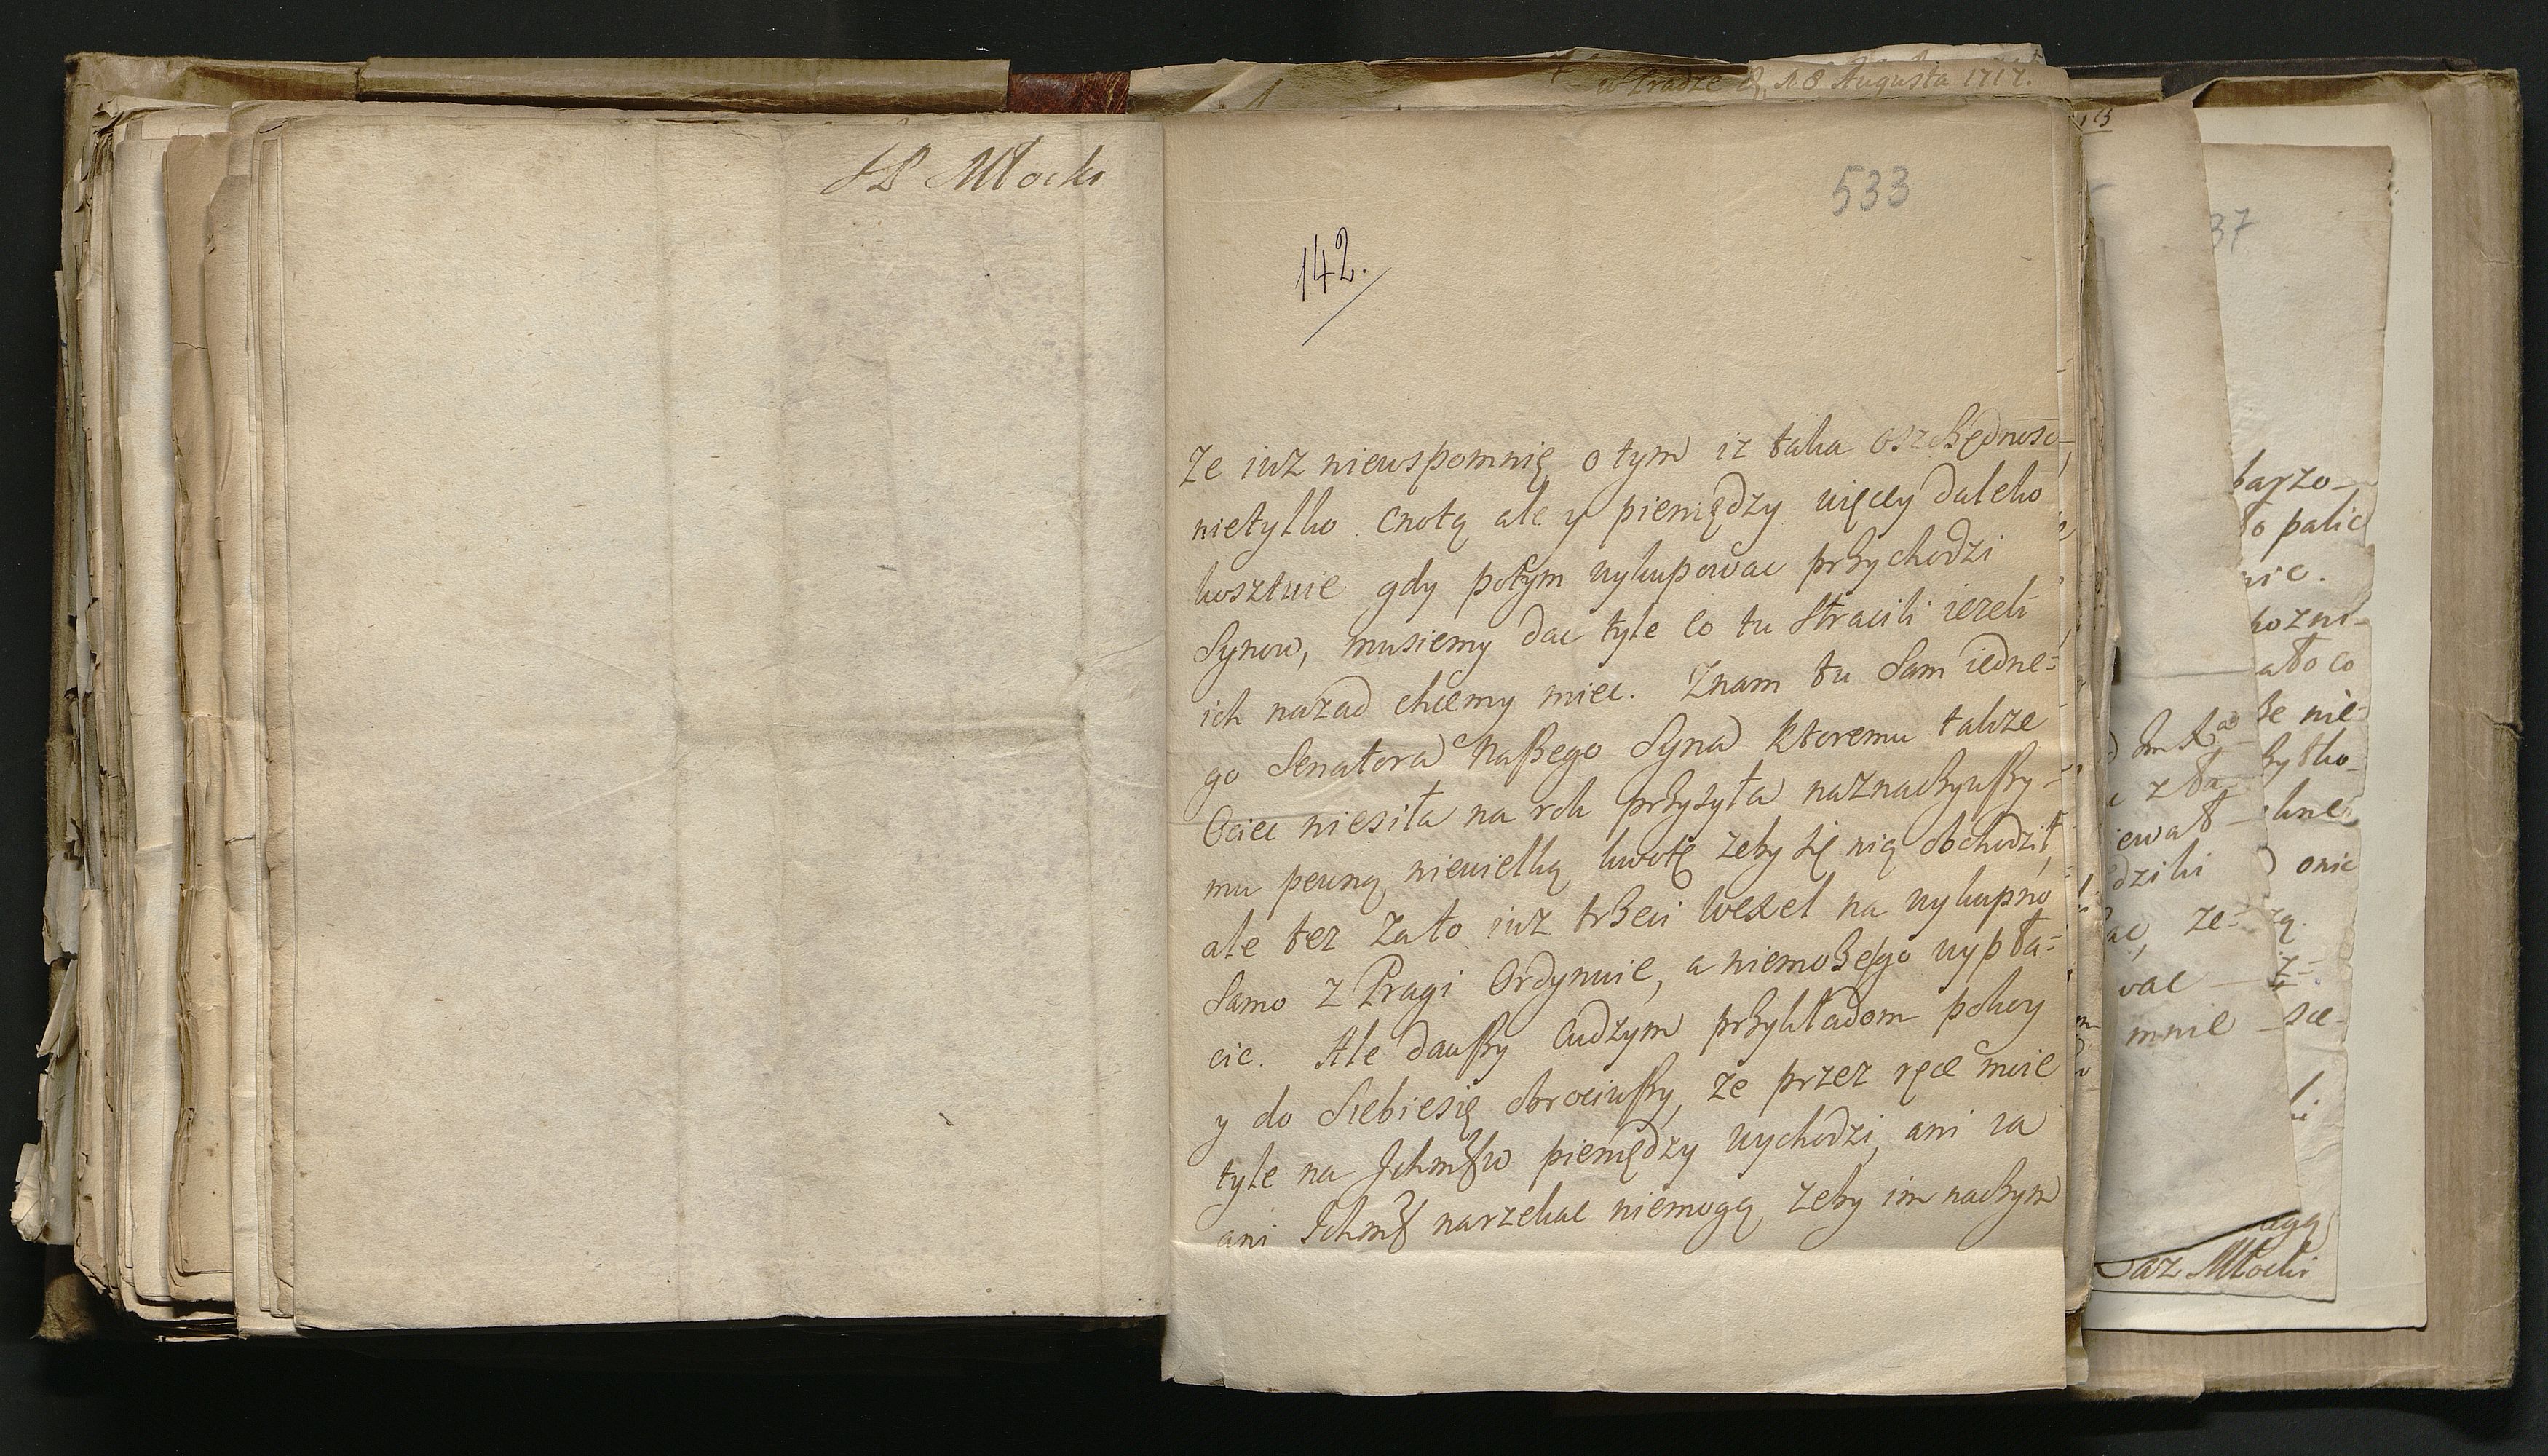 JP Młocki
w Pradze d. 18 Augusta 1717.
533
142.
Ze iuz niewspomnię o tym iz taka oszczędnosc
nietylko cnotą ale y pieniędzy więcey daleko
kosztuie gdy potym wykupowac przychodzi
Synow, musiemy dac tyle co tu stracili iezeli
ich nazad chcemy miec. Znam tu Sam iedne=
go Senatora naszego Syna ktoremu takze
Ociec niesiła na rok przysyła naznaczywszy=
mu pewną niewielką kwotę zeby się nią obchodził,
ale tez Zato iuz trzeci wexel na wykupno
samo z Pragi Ordynuie, a niemoze go wypła=
cic. Ale dawszy cudzym przykładom pokoy
y do Siebiesię obrociwszy, ze przez ręce moie
tyle na Ichmſw pieniędzy wychodzi, ani ia
ani Ichmſ narzekac niemogą zeby im naczym
37
barzo
to palic
nic.
kozni-
ało co
ze nie=
zytko-
onic
ewał
dzili
ze=
wac
mnie
az Młocki